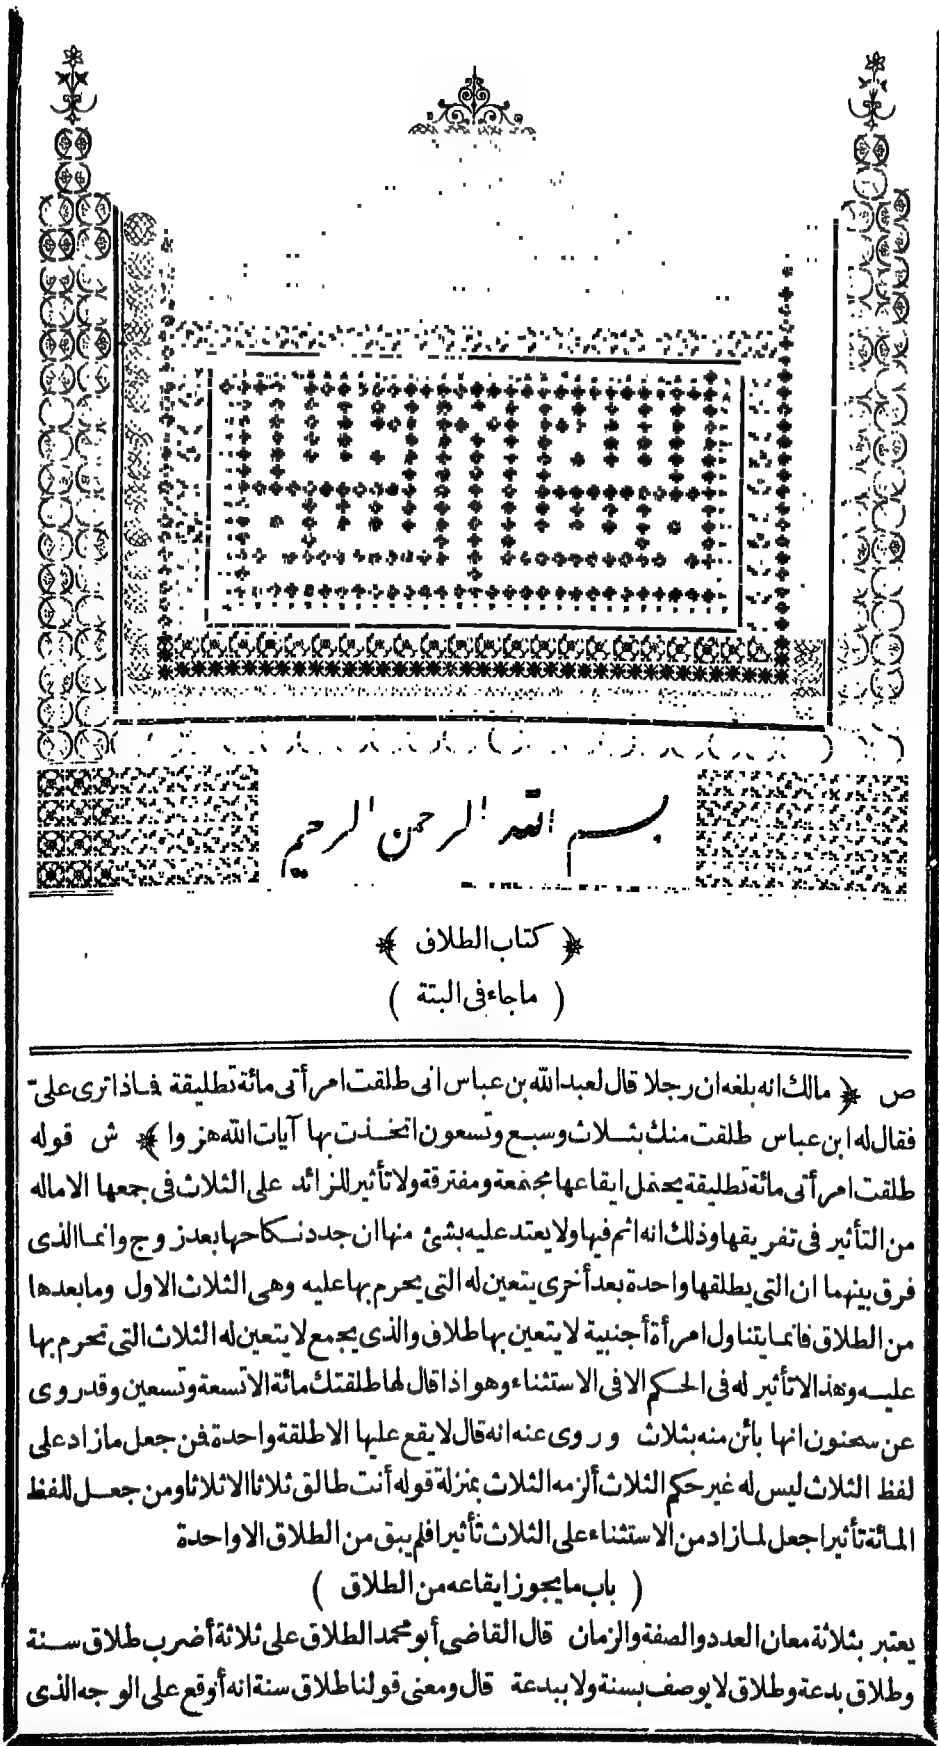 بسم الله الرحمن الرحيم
﴿ كتاب الطلاق ﴾
( ماجاء فى البتة )
ص ﴿ مالك انه بلغه ان رجلا قال لعبد الله بن عباس انى طلقت امرأتى مائة تطليقة فماذا ترى علىّ
فقال له ابن عباس طلقت منك بثلاث وسبع وتسعون اتخذت بها آيات الله هزوا ﴾ ش قوله
طلقت امرأتى مائة تطليقة يحتمل ايقاعها مجتمعة ومفترقة ولا تأثير للزائد على الثلاث فى جمعها الا ماله
من التأثير فى تفريقها وذلك انه اثم فيها ولا يعتد عليه بشئ منها ان جدد نكاحها بعد زوج وانما الذى
فرق بينهما ان التى يطلقها واحدة بعد أخرى يتعين له التى يحرم بها عليه وهى الثلاث الاول وما بعدها
من الطلاق فانما يتناول امرأة أجنبية لا يتعين بها طلاق والذى يجمع لا يتعين له الثلاث التى تحرم بها
عليه وهذا لا تأثير له فى الحكم الا فى الاستثناء وهو اذا قال لها طلقتك مائة الا تسعة وتسعين وقد روى
عن سحنون انها بائن منه بثلاث وروى عنه انه قال لا يقع عليها الا طلقة واحدة فمن جعل ما زاد على
لفظ الثلاث ليس له غير حكم الثلاث ألزمه الثلاث بمنزلة قوله أنت طالق ثلاثا الا ثلاثا ومن جعل للفظ
المائة تأثيرا جعل لما زاد من الاستثناء على الثلاث تأثيرا فلم يبق من الطلاق الا واحدة
( باب ما يجوز ايقاعه من الطلاق )
يعتبر بثلاثة معان العدد والصفة والزمان قال القاضى أبو محمد الطلاق على ثلاثة أضرب طلاق سنة
وطلاق بدعة وطلاق لا يوصف بسنة ولا ببدعة قال ومعنى قولنا طلاق سنة انه أوقع على الوجه الذى